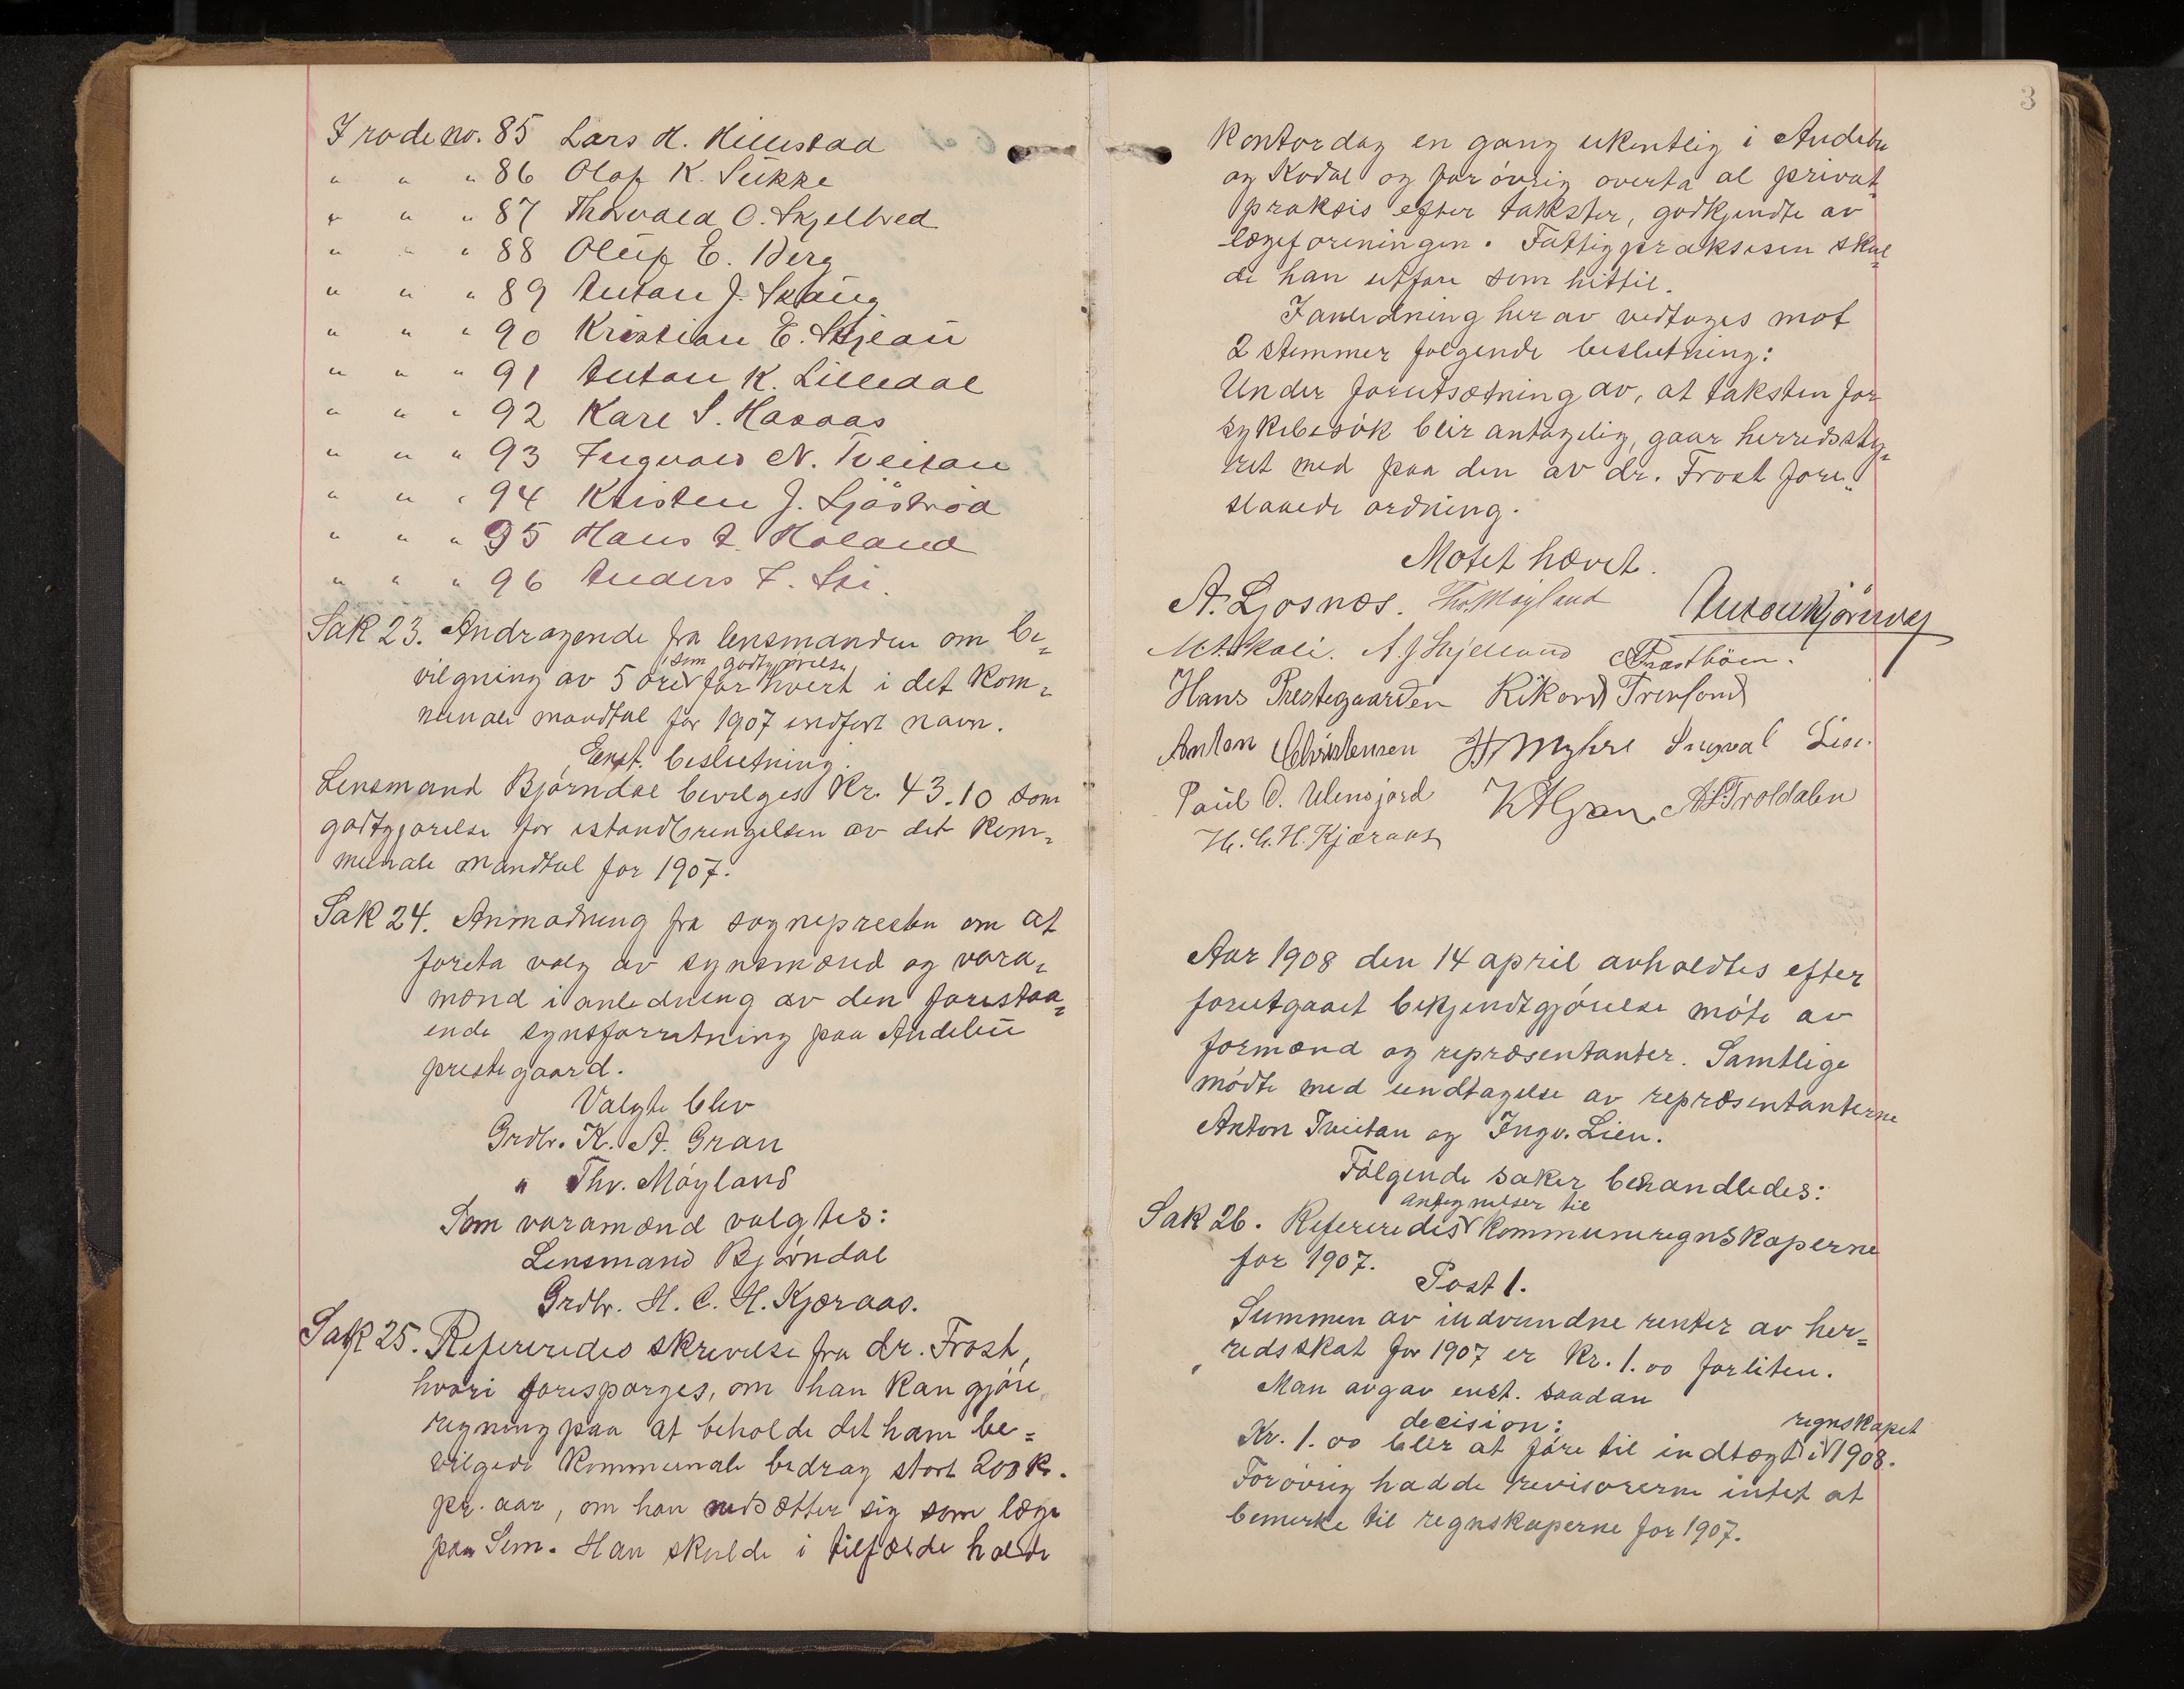 I rode no. 85 Lars H. Hillestad
" " " 86 Olaf K. Sukke
" " " 87 Thorvald O. Skjelbred
" " " 88 Oluf E. Berg
" " " 89 Anton J. Skaug
" " " 90 Kristian E. Skjeau
" " " 91 Anton K. Lilledal
" " " 92 Karl S. Hasaas
" " " 93 Ingvald N. Tveitan
" " " 94 Kristen J. Sjöströd
" " " 95 Hans A. Holand
" " " 96 Anders F. Ski.
Sak 23. Andragende fra lensmanden om be=
vilgning av 5 øre som godtgjørelse for hvert i det kom=
munale mandtal for 1907 indført navn.
Enst. beslutning:
Lensmand Bjørndal bevilges Kr. 43.10 som
godtgjørelse for istandbringelsen av det kom=
munale mandtal for 1907.
Sak 24. Anmodning fra sognepresten om at
foreta valg av synsmænd og vara=
mænd i anledning av den forestaa=
ende synsforretning paa Andebu
prestegaard.
Valgte blev
Grdbr. K. A. Gran
" Thv. Møyland
Som varamænd valgtes:
Lensmand Bjørndal
Grdbr. H. C. H. Kjæraas.
Sak 25. Refereredes skrivelse fra dr. Frost,
hvori forespørges, om han kan gjøre
regning paa at beholde det ham be=
vilgede kommunale bedrag stort 200 kr.
pr. aar, om han nedsætter sig som læge
paa Sem. Han skulde i tilfælde holde
3
kontordag en gang ukentlig i Andebu
og Kodal og forøvrig overta al privat
praksis efter takster, godkjendte av
lægeforeningen. Fattigpraksisen skul=
de han utføre som hittil.
I anledning herav vedtoges mot
2 stemmer følgende beslutning:
Under forutsætning av, at taksten for
sykebesøk blir antagelig, gaar herredssty=
ret med paa den av dr. Frost fore=
slaaede ordning.
Møtet hævet.
A. Ljosnæs. Thv. Møyland Anton Kjørnvag
M. A. Skali. A. J. Skjelland Præstbøen.
Hans Prestegaarden Rikard Trevland
Anton Christensen H Myhre Ingval Lien.
Paul O. Ulensjord K A Gran. A. L. Troldalen
H. C. H. Kjæraas
Aar 1908 den 14 april avholdtes efter
forutgaaet bekjendtgjørelse møte av
formænd og repræsentanter. Samtlige
mødte med undtagelse av repræsentanterne
Anton Tveitan og Ingv. Lien.
Følgende saker behandledes:
Sak 26. Refereredes antegnelser til kommuneregnskaperne
for 1907.
Post 1.
Summen av indvundne renter av her=
redsskat for 1907 er kr. 1.00 forliten.
Man avgav enst. saadan
decision:
Kr. 1.00 blir at føre til indtægt i regnskapet 1908.
Forøvrig hadde revisorerne intet at
bemerke til regnskaperne for 1907.